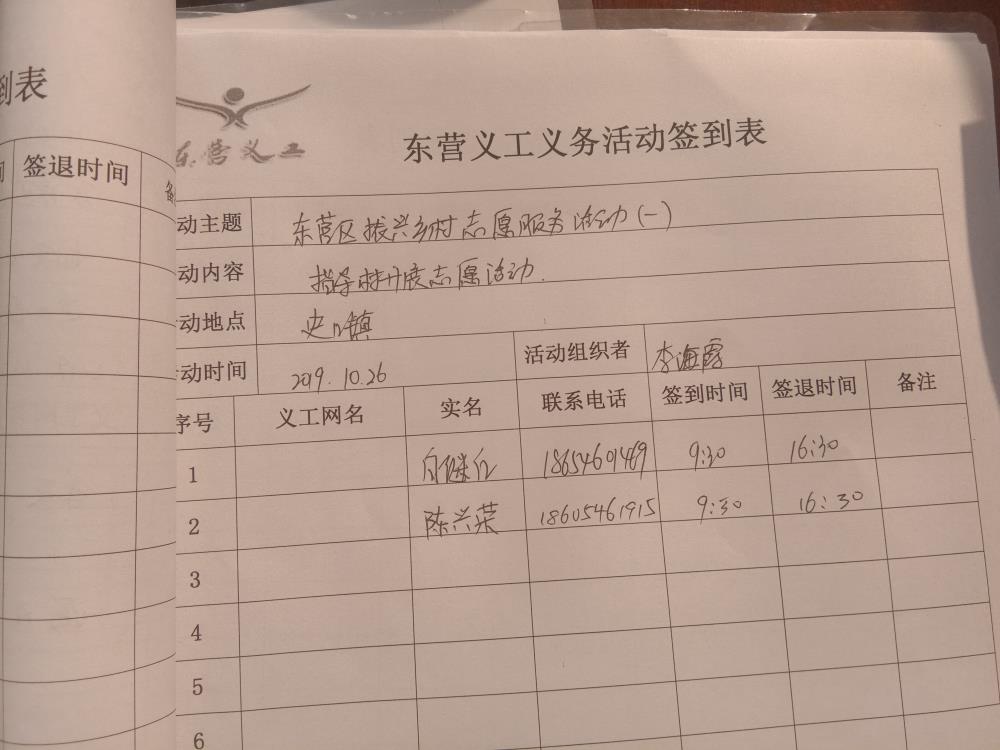 到表
签退时间
备
东营义工
东营义工义务活动签到表
动主题 东营区振兴乡村志愿服务活动(一)
动内容 指导村开展志愿活动.
动地点 史口镇
动时间 2019.10.26 活动组织者 李海霞
序号 义工网名 实名 联系电话 签到时间 签退时间 备注
1 18654601469 9:30 16:30
2 陈兴荣 18605461915 9:30 16:30
3
4
5
6